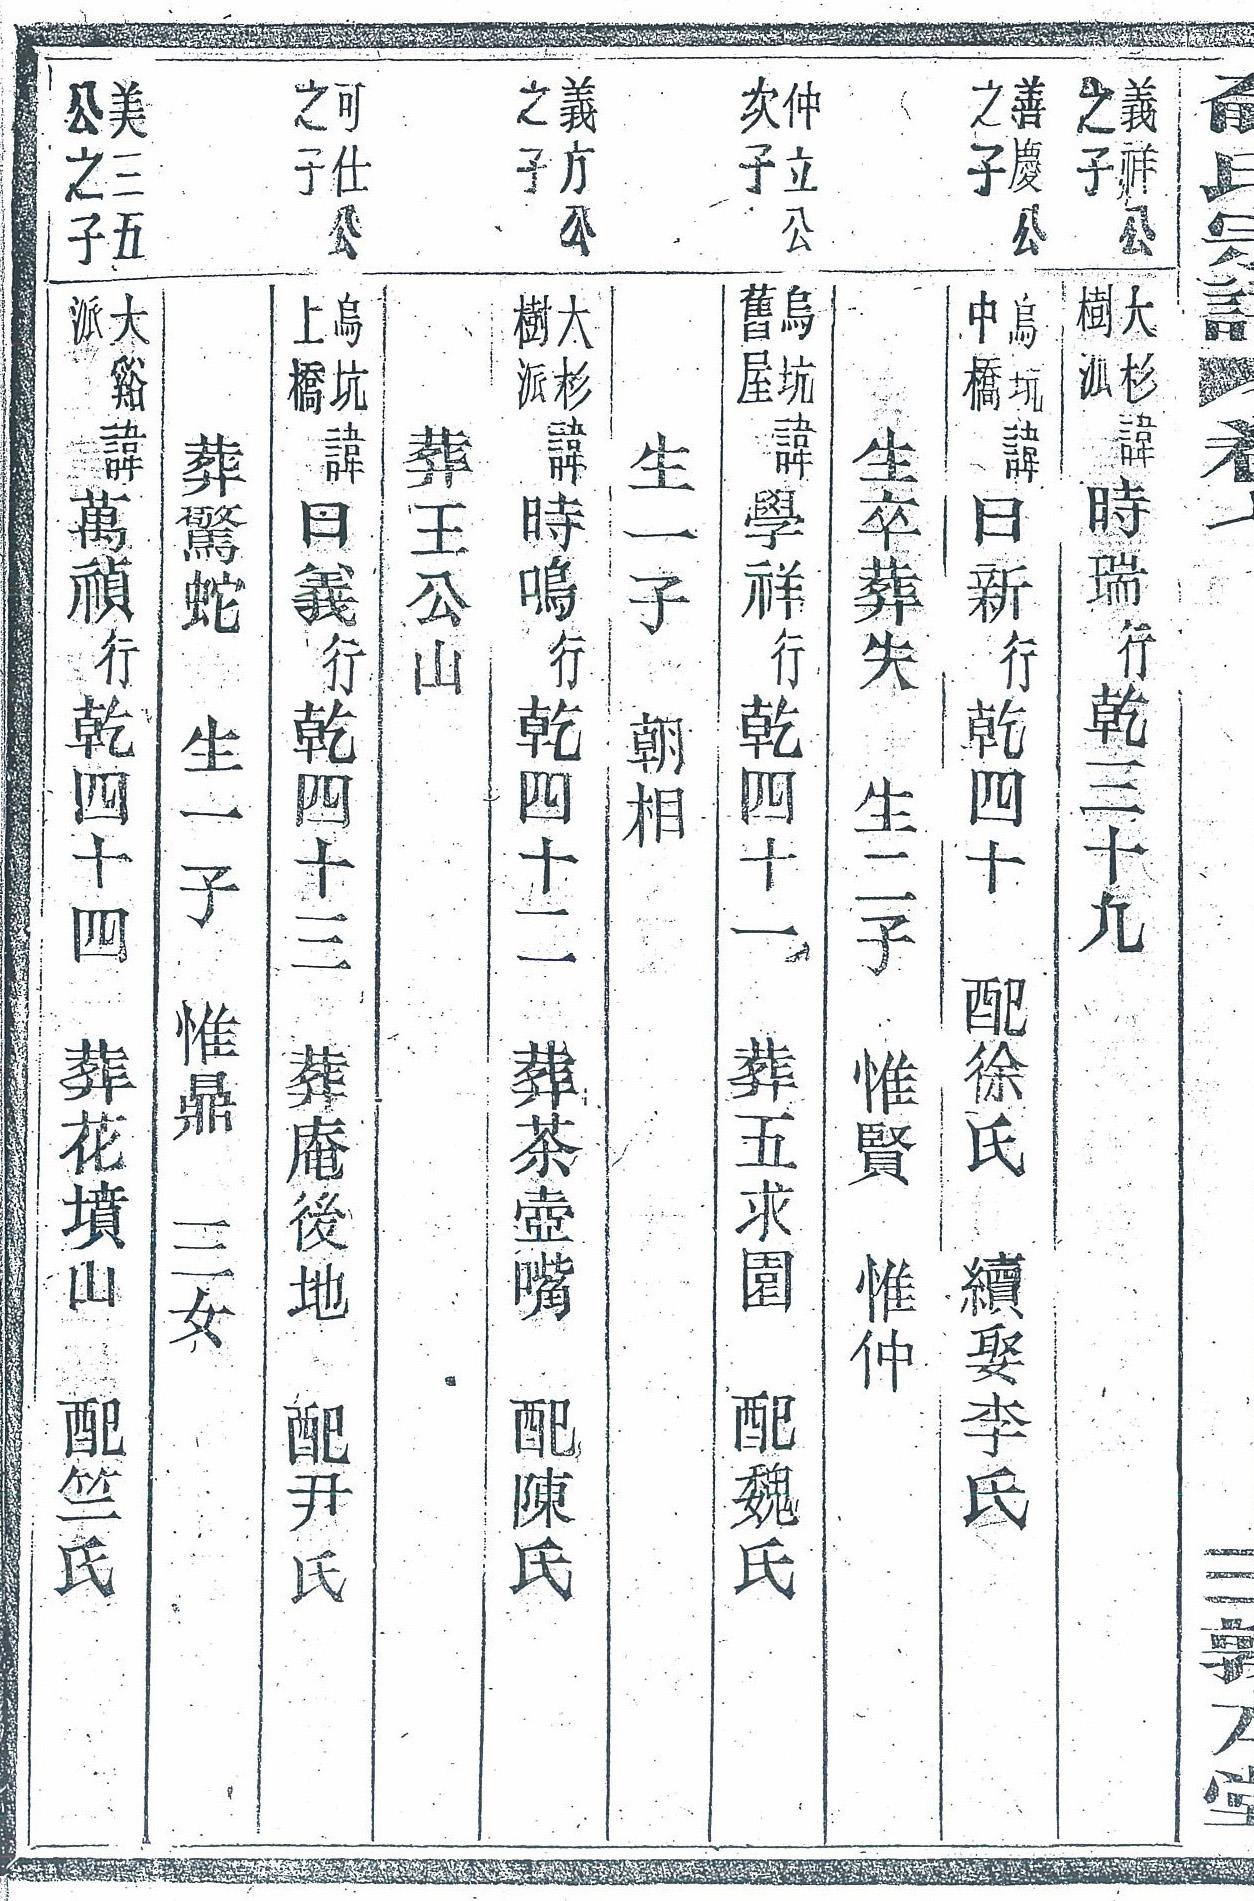 氏宗譜 卷
義祥公
之子
大杉
樹派
諱時瑞行乾三十九
善慶公
之子
烏坑
中橋
諱曰新行乾四十 配徐氏 續娶李氏
生卒葬失 生二子 惟賢 惟仲
仲立公
次子
烏坑
舊屋
諱學祥行乾四十一 葬五求園 配魏氏
生一子 朝相
義方公
之子
大杉
樹派
諱時鳴行乾四十二 葬茶壺嘴 配陳氏
葬王公山
可仕公
之子
烏坑
上橋
諱曰義行乾四十三 葬庵後地 配尹氏
葬驚蛇 生一子 惟鼎 三女
美三五
公之子
大谿
派
諱萬禎行乾四十四 葬花墳山 配竺氏